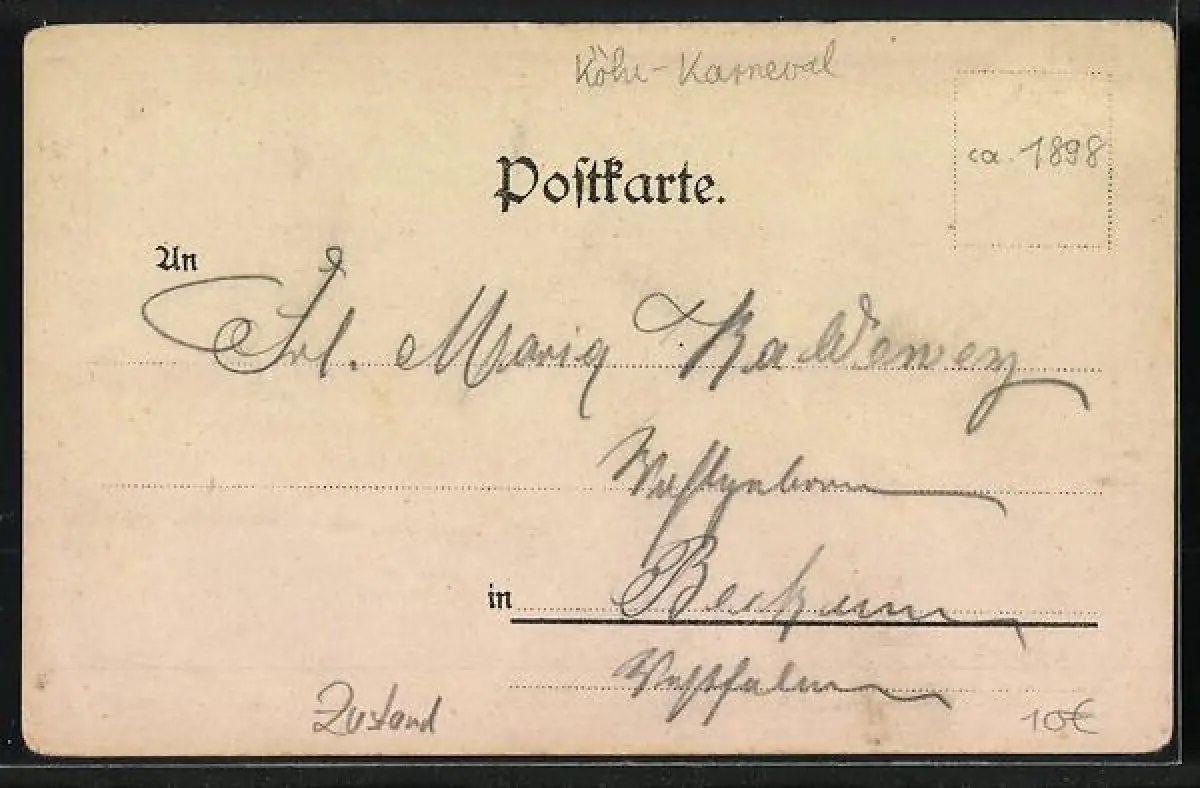 Köln-Karneval
ca. 1898
Postkarte.
An
Frl. Maria Kalldewey
in Beckum
Westfalen
Zustand
10€